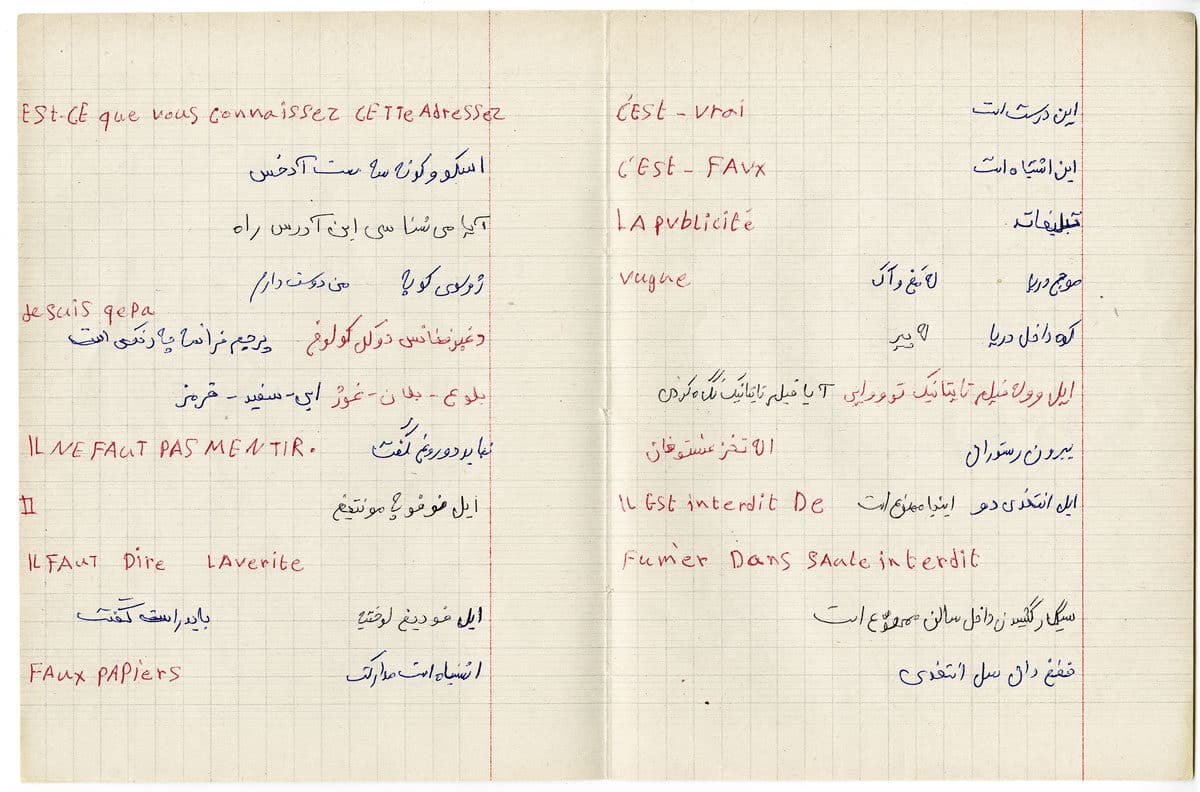 ESt-CE que vous connaissez CETTE Adressez
اسکو وکونه سه ست آدخس
آیا می شناسی این آدرس راه
ژوسوی کوپا من دوست دارم
Je suis qepa
دغپونغانس دوکل کولوغ پرچم فرانسه چارنگی است
بلوع - بلان - غوژ ابی - سفید - قرمز
IL NE FAUT PAS MENTIR. نباید دوروغ گفت
ایل فوفو پا مونتیغ
IL FAUT Dire LAverite
ایل فودیغ لوختیه باید راست گفت
FAux PAPiers اشتباه است مدارکت
C'ESt - vrai این درست است
C'ESt - FAUX این اشتباه است
LA publicité تبلیغات
vague موج دریا له غ وآگ
که داخل دریا له پیر
ایل ووله فیلم تایتانیک تووولپی آیا فیلم تایتانیک نگاه کردی
بیرون رستوران
IL ESt interdit De اینجا ممنوع است ایل انتغدی دو
Fumer Dans SAule interdit
سیگار کشیدن داخل سالن ممنوع است
ففیغ دان سل انتغدی